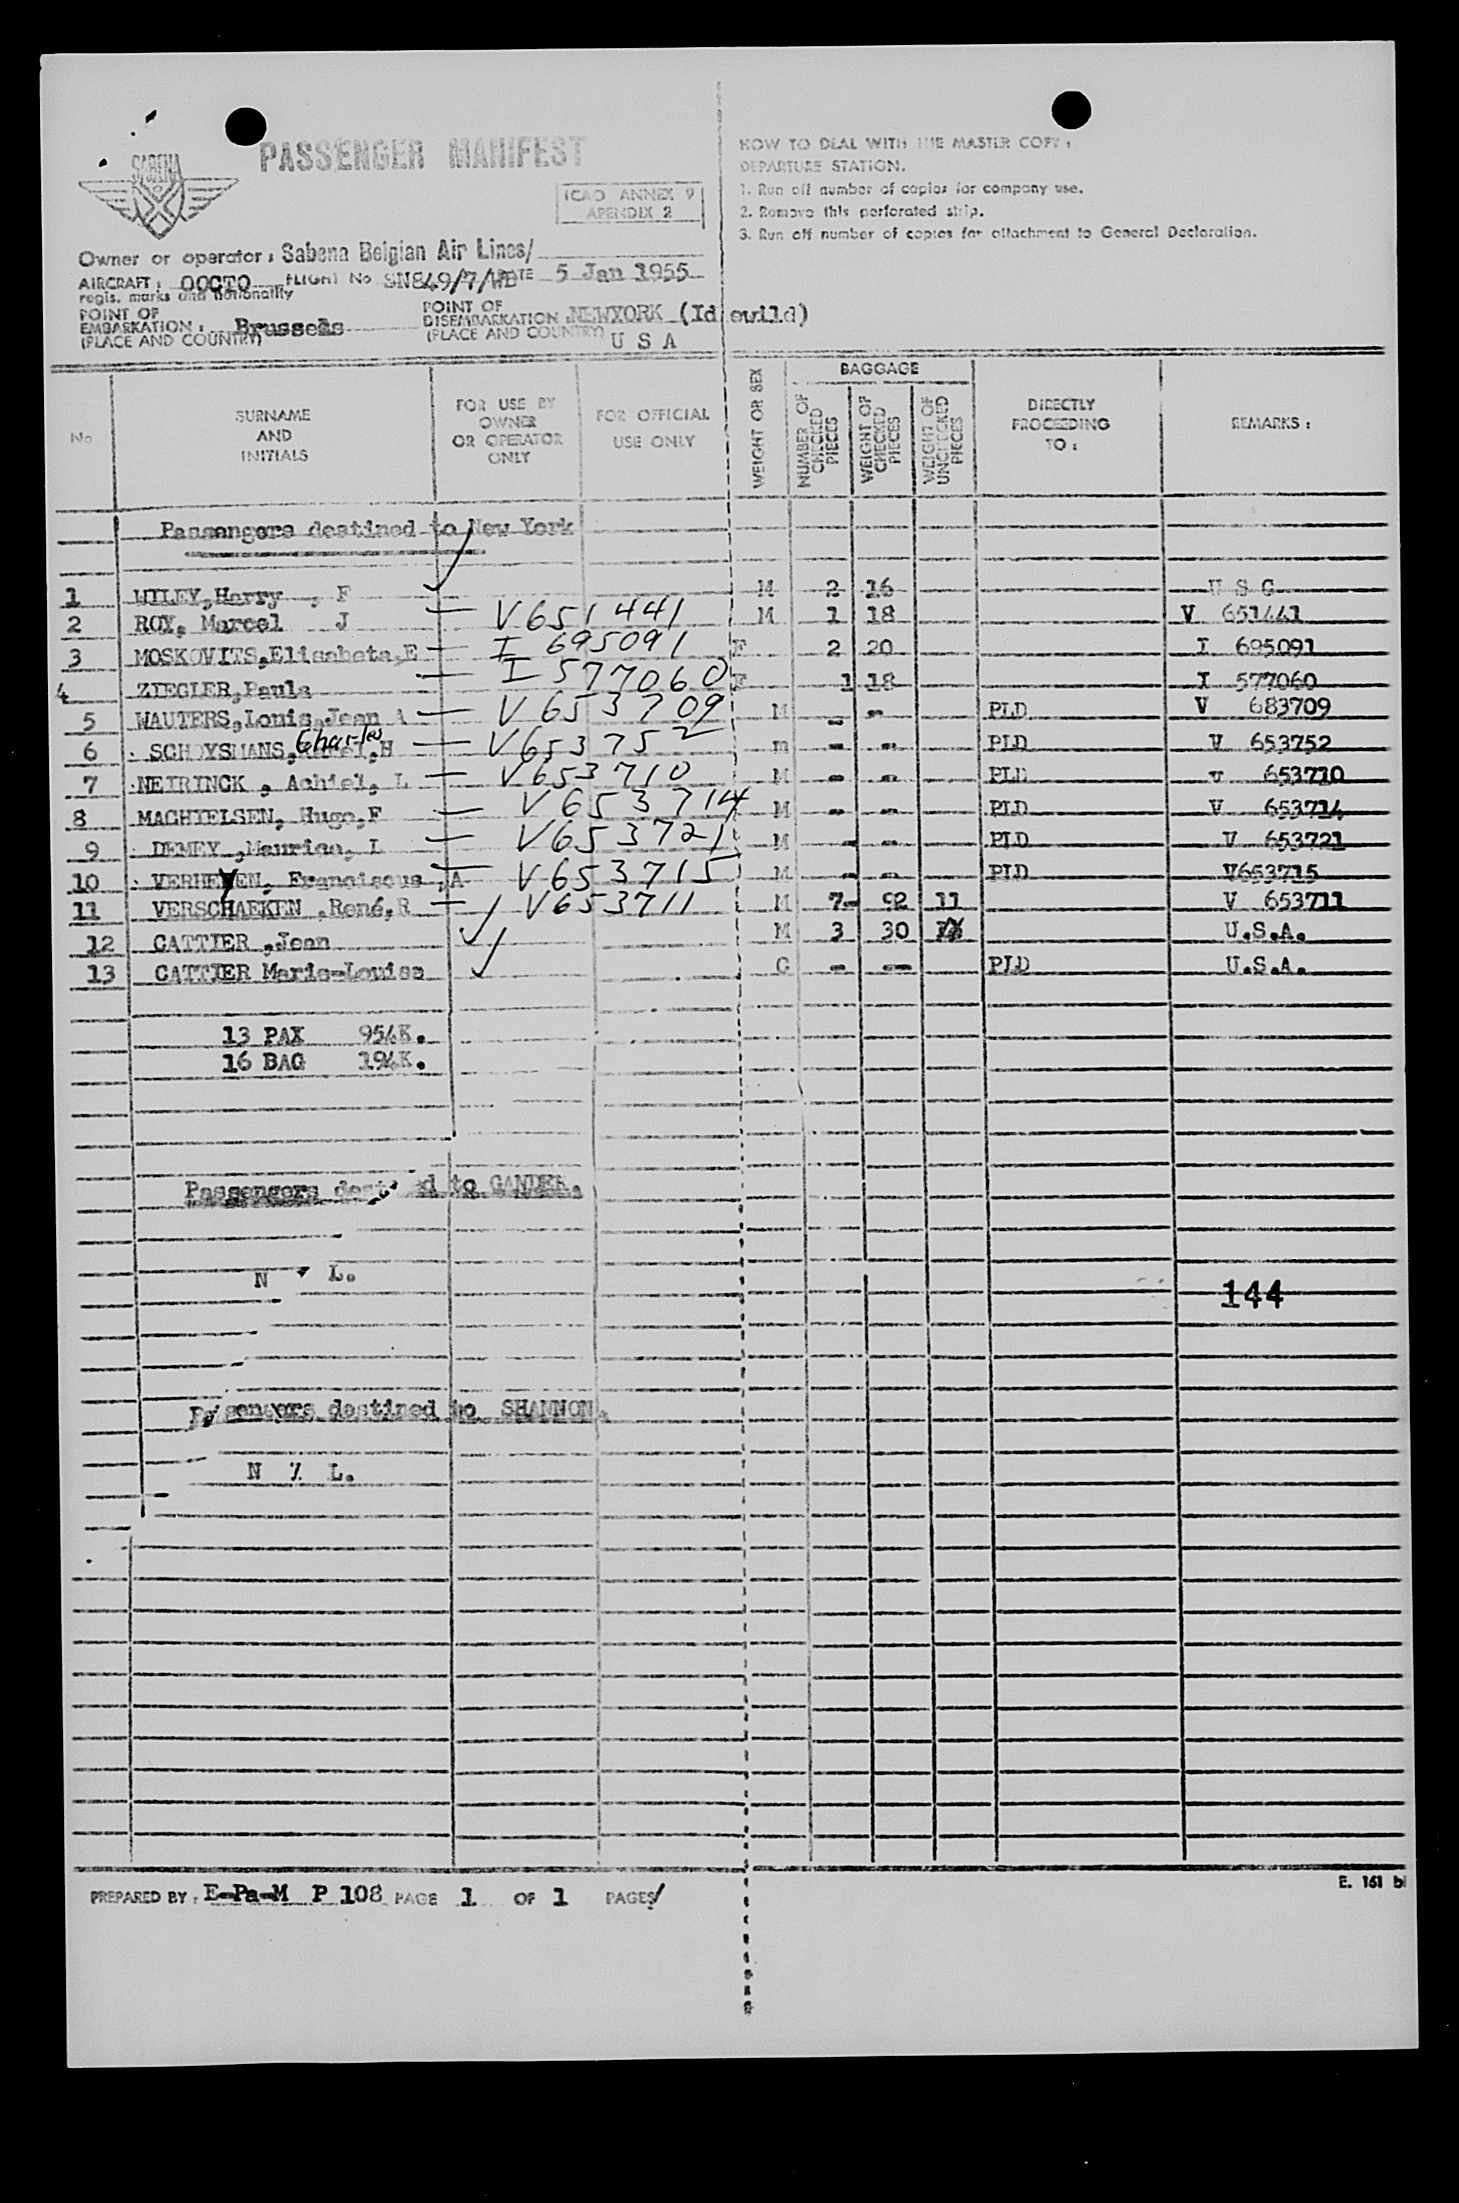 SABENA
PASSENGER MANIFEST
ICAO ANNEX 9
APENDIX 2
HOW TO DEAL WITH THE MASTER COPY :
DEPARTURE STATION.
1. Run off number of copies for company use.
2. Remove this perforated strip.
3. Run off number of copies for attachment to General Declaration.
Owner or operator : Sabena Belgian Air Lines/
AIRCRAFT : OOCTO FLIGHT No SN849/7/WB DATE 5 Jan 1955
regis. marks and nationality
POINT OF EMBARKATION : Brussels
(PLACE AND COUNTRY)
POINT OF DISEMBARKATION NEWYORK (Idlewild)
(PLACE AND COUNTRY) U S A
No
SURNAME AND INITIALS
FOR USE BY OWNER OR OPERATOR ONLY
FOR OFFICIAL USE ONLY
WEIGHT OR SEX
BAGGAGE
NUMBER OF CHECKED PIECES
WEIGHT OF CHECKED PIECES
WEIGHT OF UNCHECKED PIECES
DIRECTLY PROCEEDING TO :
REMARKS :
Passengers destined to New York
1 WILEY,Harry , F M 2 16 U S C
2 ROY, Marcel J — V651441 M 1 18 V 651441
3 MOSKOVITS,Elisabeta,E — I 695091 F 2 20 I 695091
4 ZIEGLER,Paula — I 577060 F 1 18 I 577060
5 WAUTERS,Louis,Jean A — V 653709 M - - PLD V 683709
6 SCHOYSMANS, Charles ,H — V653752 m - - PLD V 653752
7 NEIRINCK , Achiel, L — V653710 M - - PLD V 653710
8 MACHIELSEN, Hugo,F — V 653714 M - - PLD V 653714
9 DEMEY ,Maurice, L — V653721 M - - PLD V 653721
10 VERHEYEN, Franciscus ,A — V653715 M - - PLD V653715
11 VERSCHAEKEN ,René,R — V653711 M 7- 92 11 V 653711
12 CATTIER ,Jean M 3 30 U.S.A.
13 CATTIER Marie-Louise C - - PLD U.S.A.
13 PAX 954K.
16 BAG 194K.
Passengers destined to GANDER.
N L.
144
Passengers destined to SHANNON.
N / L.
PREPARED BY : E-Pa-M P 108 PAGE 1 OF 1 PAGES/
E. 161 bi